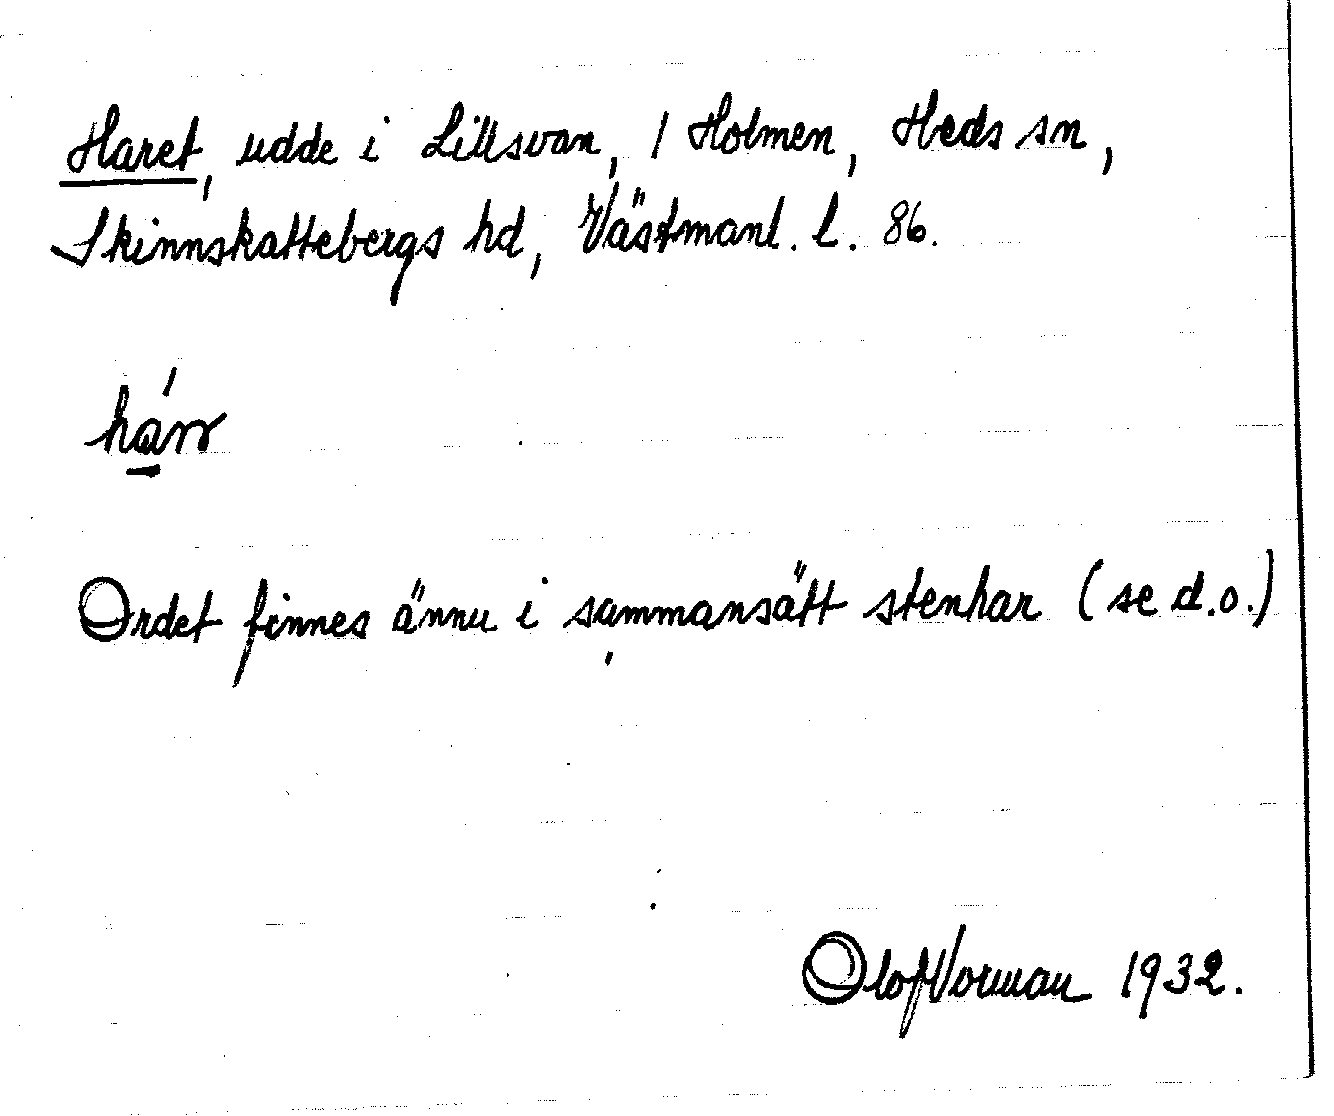 Haret, udde i Lillsvan, 1 Holmen, Heds sn,
Skinnskattebergs hd, Västmanl. l. 86.
hárr
Ordet finnes ännu i sammansätt stenhar (se d.o.)
Olof Norman 1932.